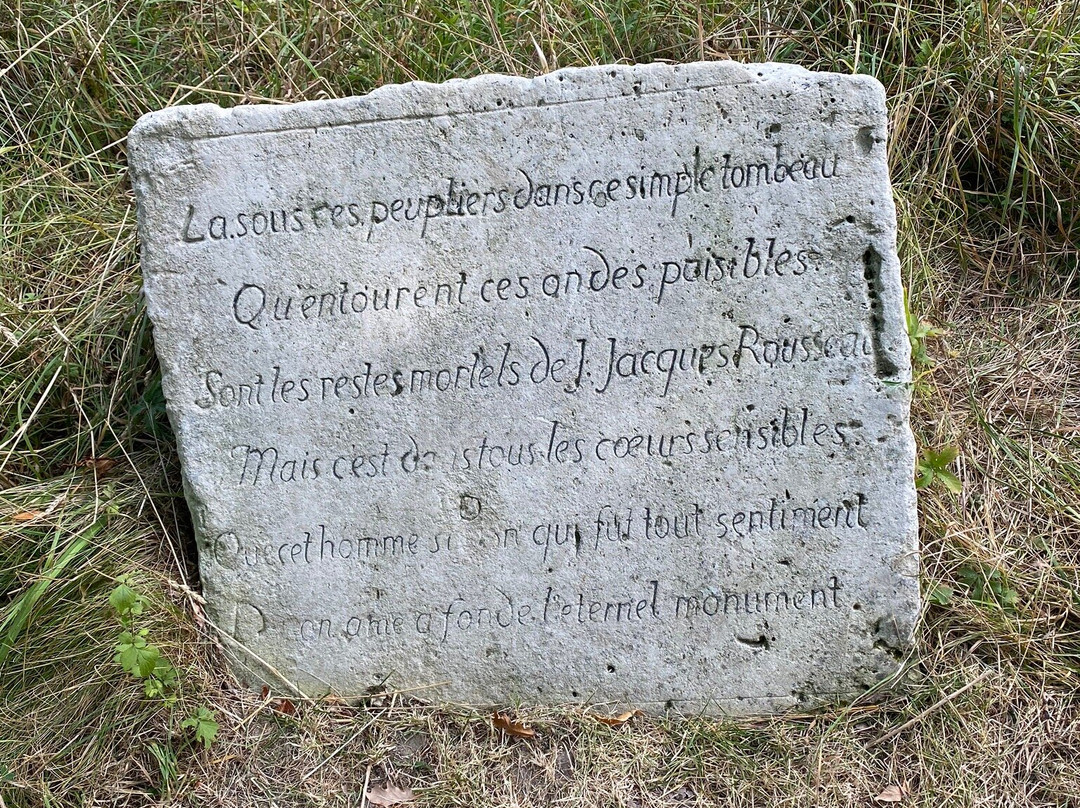 La sous ces peupliers dans ce simple tombeau
Qu'entourent ces ondes paisibles
Sont les restes mortels de J. Jacques Rousseau
Mais c'est dans tous les cœurs sensibles
Que cet homme si bon qui fut tout sentiment
De son ame a fondé l'eternel monument